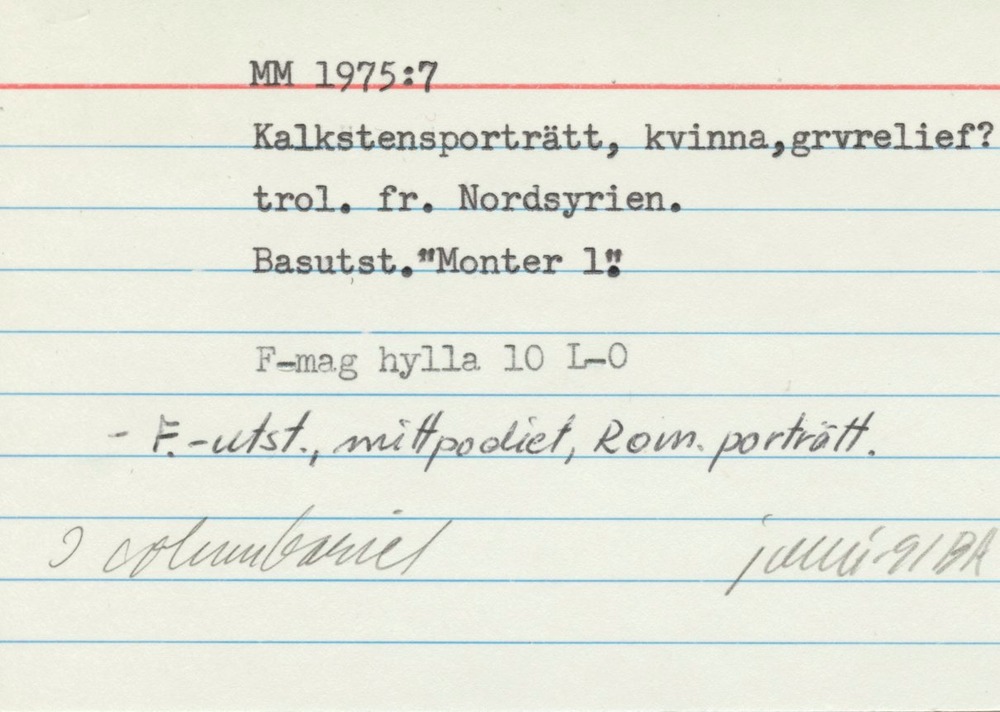 MM 1975:7
Kalkstensporträtt, kvinna,grvrelief?
trol. fr. Nordsyrien.
Basutst."Monter 1".
F-mag hylla 10 L-O
- F.-utst., mittpodiet, Rom. porträtt.
I columbariet juni-91 BA